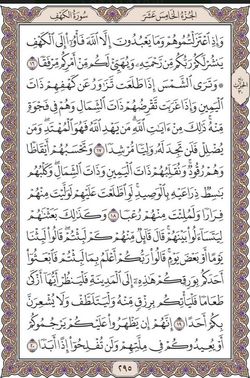 الجزء الخامس عشر
سورة الكهف
وَإِذِ ٱعۡتَزَلۡتُمُوهُمۡ وَمَا يَعۡبُدُونَ إِلَّا ٱللَّهَ فَأۡوُۥٓاْ إِلَى ٱلۡكَهۡفِ
يَنشُرۡ لَكُمۡ رَبُّكُم مِّن رَّحۡمَتِهِۦ وَيُهَيِّئۡ لَكُم مِّنۡ أَمۡرِكُم مِّرۡفَقٗا ١٦
۞ وَتَرَى ٱلشَّمۡسَ إِذَا طَلَعَت تَّزَٰوَرُ عَن كَهۡفِهِمۡ ذَاتَ
ٱلۡيَمِينِ وَإِذَا غَرَبَت تَّقۡرِضُهُمۡ ذَاتَ ٱلشِّمَالِ وَهُمۡ فِي فَجۡوَةٖ
مِّنۡهُۚ ذَٰلِكَ مِنۡ ءَايَٰتِ ٱللَّهِۗ مَن يَهۡدِ ٱللَّهُ فَهُوَ ٱلۡمُهۡتَدِۖ وَمَن
يُضۡلِلۡ فَلَن تَجِدَ لَهُۥ وَلِيّٗا مُّرۡشِدٗا ١٧ وَتَحۡسَبُهُمۡ أَيۡقَاظٗا
وَهُمۡ رُقُودٞۚ وَنُقَلِّبُهُمۡ ذَاتَ ٱلۡيَمِينِ وَذَاتَ ٱلشِّمَالِۖ وَكَلۡبُهُم
بَٰسِطٞ ذِرَاعَيۡهِ بِٱلۡوَصِيدِۚ لَوِ ٱطَّلَعۡتَ عَلَيۡهِمۡ لَوَلَّيۡتَ مِنۡهُمۡ
فِرَارٗا وَلَمُلِئۡتَ مِنۡهُمۡ رُعۡبٗا ١٨ وَكَذَٰلِكَ بَعَثۡنَٰهُمۡ
لِيَتَسَآءَلُواْ بَيۡنَهُمۡۚ قَالَ قَآئِلٞ مِّنۡهُمۡ كَمۡ لَبِثۡتُمۡۖ قَالُواْ لَبِثۡنَا
يَوۡمًا أَوۡ بَعۡضَ يَوۡمٖۚ قَالُواْ رَبُّكُمۡ أَعۡلَمُ بِمَا لَبِثۡتُمۡ فَٱبۡعَثُوٓاْ
أَحَدَكُم بِوَرِقِكُمۡ هَٰذِهِۦٓ إِلَى ٱلۡمَدِينَةِ فَلۡيَنظُرۡ أَيُّهَآ أَزۡكَىٰ
طَعَامٗا فَلۡيَأۡتِكُم بِرِزۡقٖ مِّنۡهُ وَلۡيَتَلَطَّفۡ وَلَا يُشۡعِرَنَّ
بِكُمۡ أَحَدًا ١٩ إِنَّهُمۡ إِن يَظۡهَرُواْ عَلَيۡكُمۡ يَرۡجُمُوكُمۡ
أَوۡ يُعِيدُوكُمۡ فِي مِلَّتِهِمۡ وَلَن تُفۡلِحُوٓاْ إِذًا أَبَدٗا ٢٠
٢٩٥